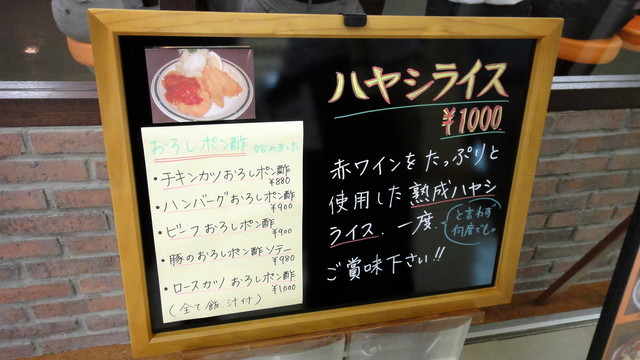 おろしポン酢 始めました
・チキンカツおろしポン酢
¥880
・ハンバーグおろしポン酢
¥900
・ビーフおろしポン酢
¥900
・豚のおろしポン酢ソテー
¥980
・ロースカツおろしポン酢
¥1000
(全て飯、汁付)
ハヤシライス
¥1000
赤ワインをたっぷりと
使用した熟成ハヤシ
ライス.一度.
と言わず
何度でも。
ご賞味下さい!!